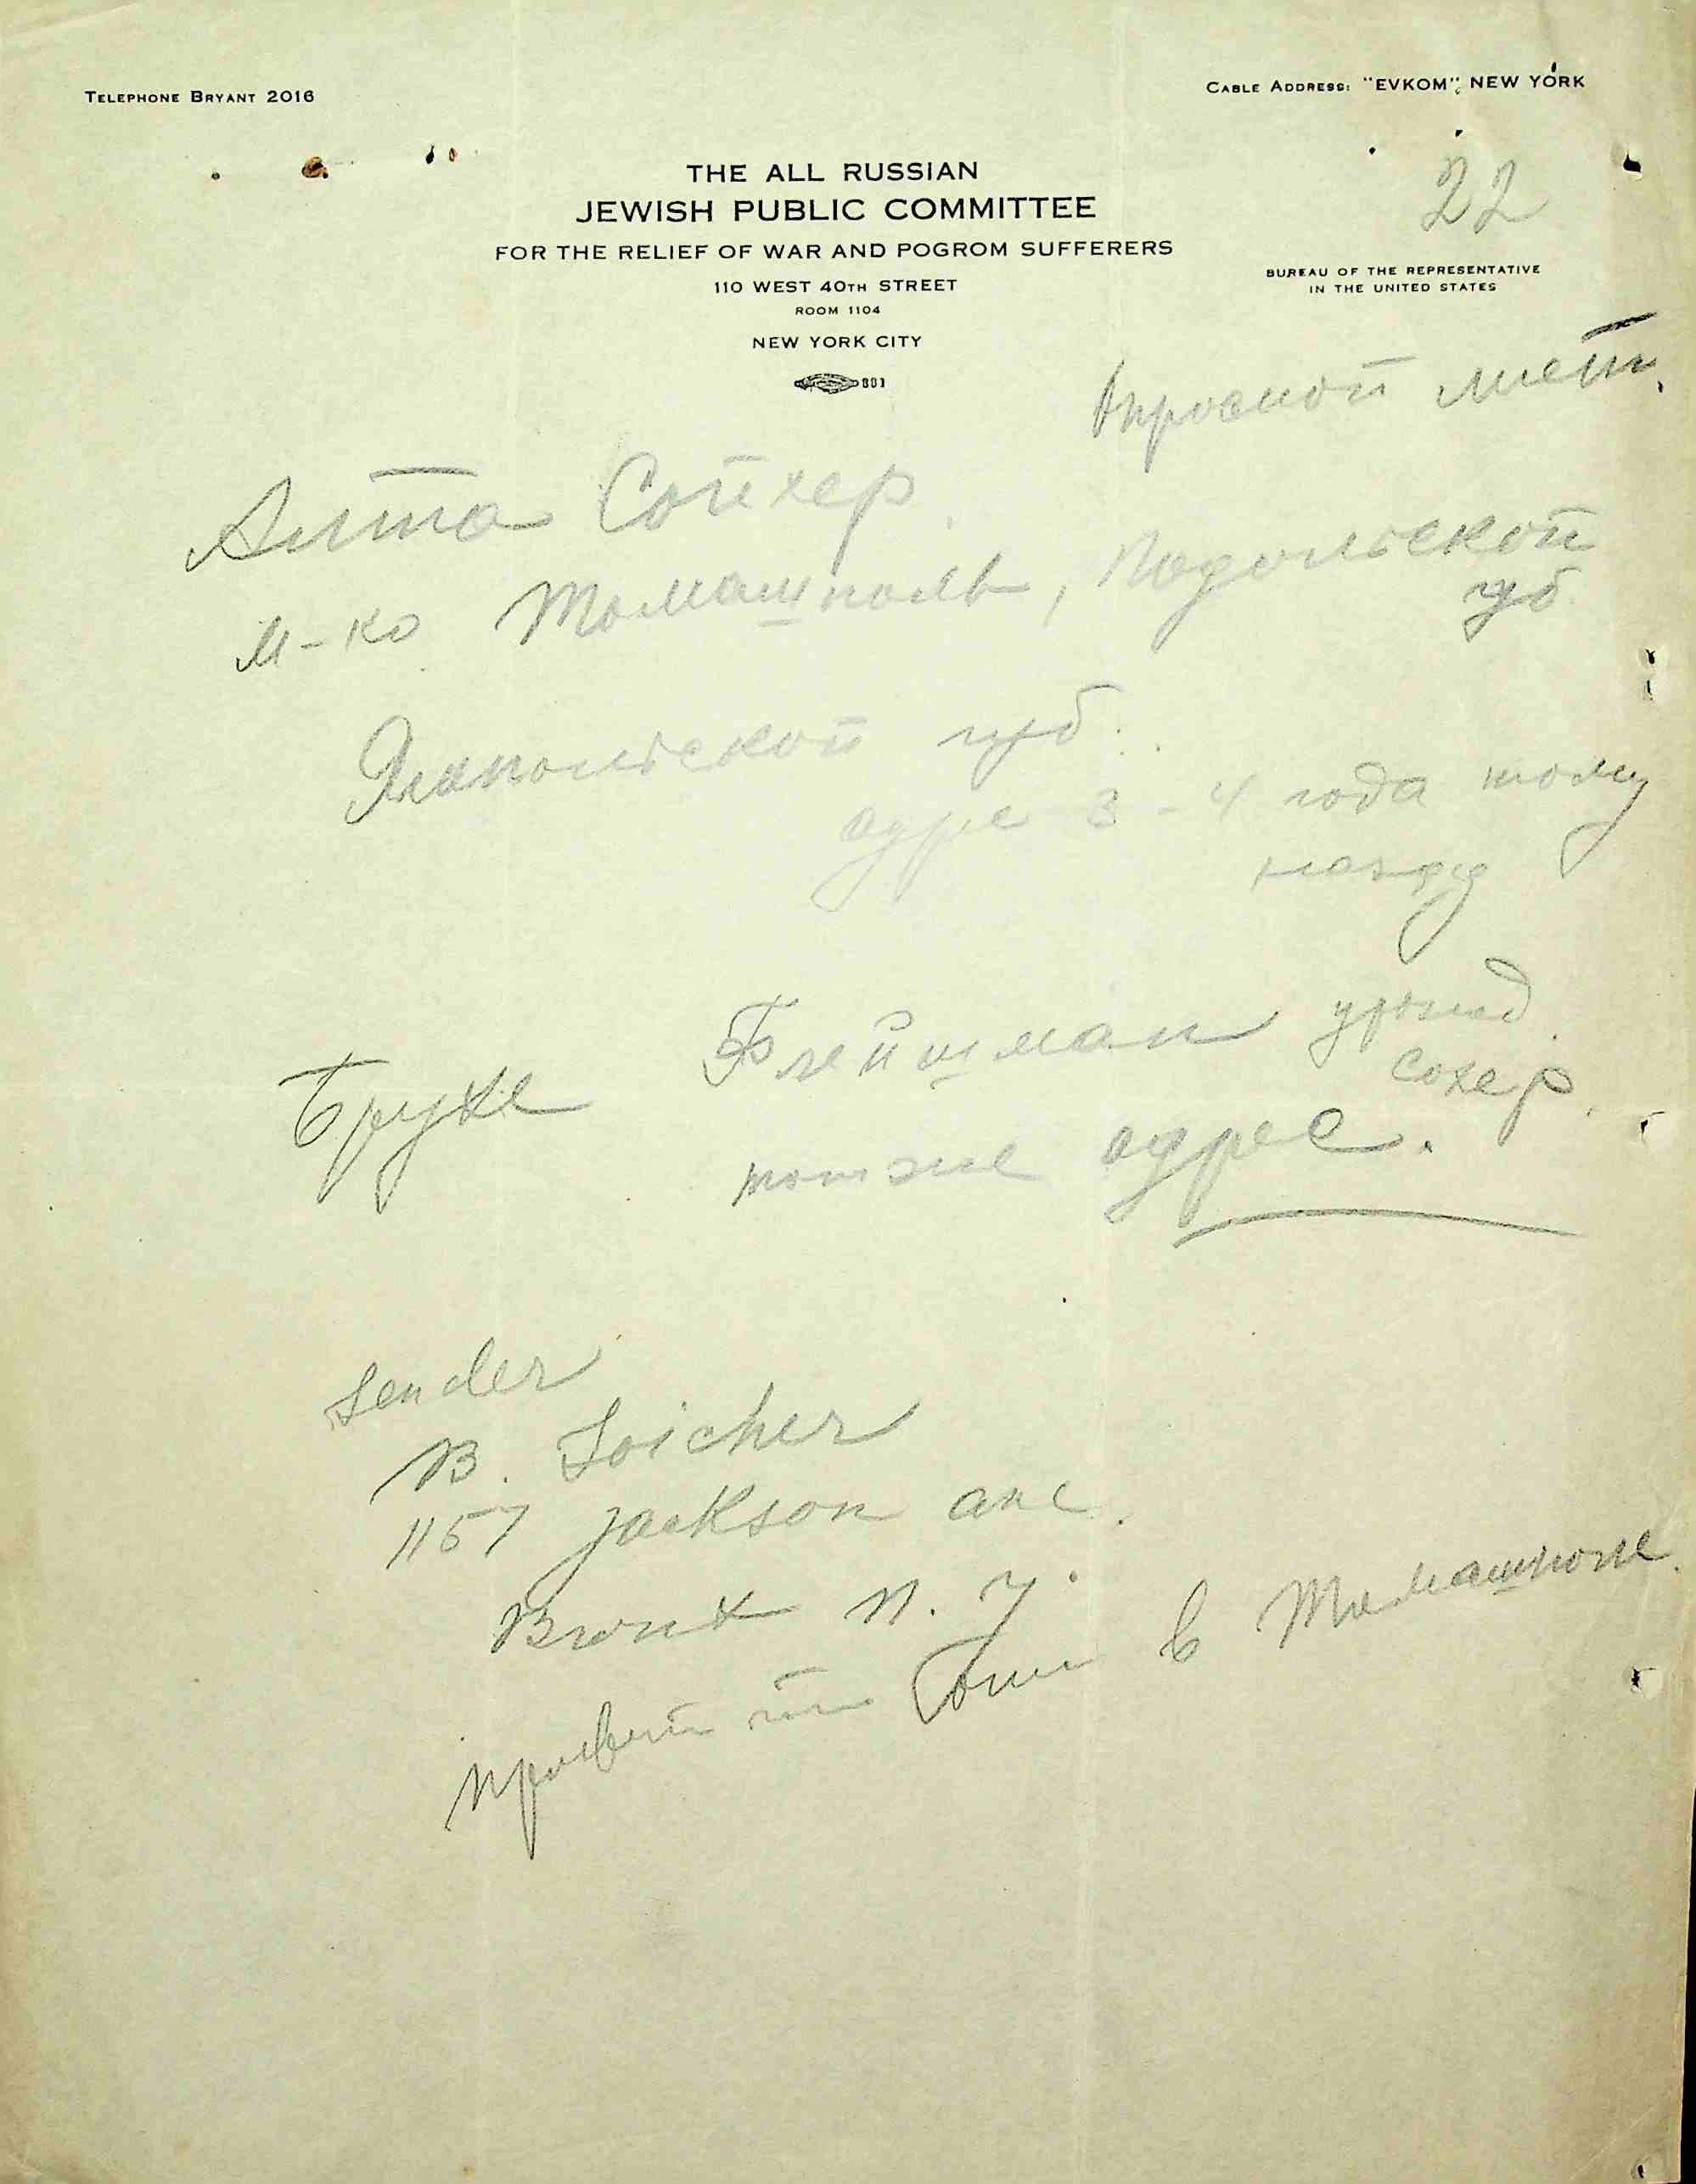 TELEPHONE BRYANT 2016
CABLE ADDRESS: "EVKOM", NEW YORK
THE ALL RUSSIAN
JEWISH PUBLIC COMMITTEE
FOR THE RELIEF OF WAR AND POGROM SUFFERERS
110 WEST 40TH STREET
ROOM 1104
NEW YORK CITY
881
22
BUREAU OF THE REPRESENTATIVE
IN THE UNITED STATES
Алта Сойхер
м-ко Томашполь, Подольской
губ
Ямпольской губ.
адре 3-4 года тому
назад
Брухе Флейшман урожд.
Сохер.
тот же адрес.
Sender
B. Soicher
1157 Jackson ave.
Bronx N. Y.
в Томашполе.